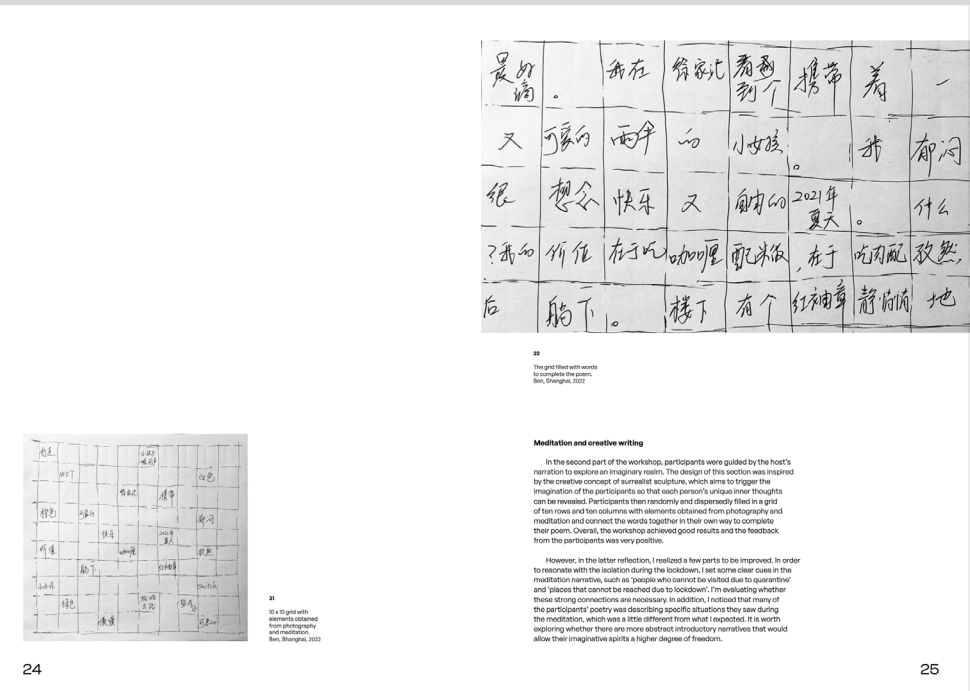 最好 摘 。 我在 看到 个 携带 着 一
又 可爱的 雨伞 的 小女孩 。 我 郁闷
很 想念 快乐 又 自由的 2021年 夏天 。 什么
?我的 价值 在于吃 咖喱 配米饭 ,在于 吃肉配
后 躺下 。 楼下 有个 红袖章 静悄悄 地
22
The grid filled with words
to complete the poem.
Ben, Shanghai, 2022
白色
携带
可爱的
郁闷
快乐
2021年
夏天
价值
躺下
红袖章
switch
绿色
21
10 x 10 grid with
elements obtained
from photography
and meditation.
Ben, Shanghai, 2022
Meditation and creative writing
In the second part of the workshop, participants were guided by the host's
narration to explore an imaginary realm. The design of this section was inspired
by the creative concept of surrealist sculpture, which aims to trigger the
imagination of the participants so that each person's unique inner thoughts
can be revealed. Participants then randomly and dispersedly filled in a grid
of ten rows and ten columns with elements obtained from photography and
meditation and connect the words together in their own way to complete
their poem. Overall, the workshop achieved good results and the feedback
from the participants was very positive.
However, in the latter reflection, I realized a few parts to be improved. In order
to resonate with the isolation during the lockdown, I set some clear cues in the
meditation narrative, such as 'people who cannot be visited due to quarantine'
and 'places that cannot be reached due to lockdown'. I'm evaluating whether
these strong connections are necessary. In addition, I noticed that many of
the participants' poetry was describing specific situations they saw during
the meditation, which was a little different from what I expected. It is worth
exploring whether there are more abstract introductory narratives that would
allow their imaginative spirits a higher degree of freedom.
24
25